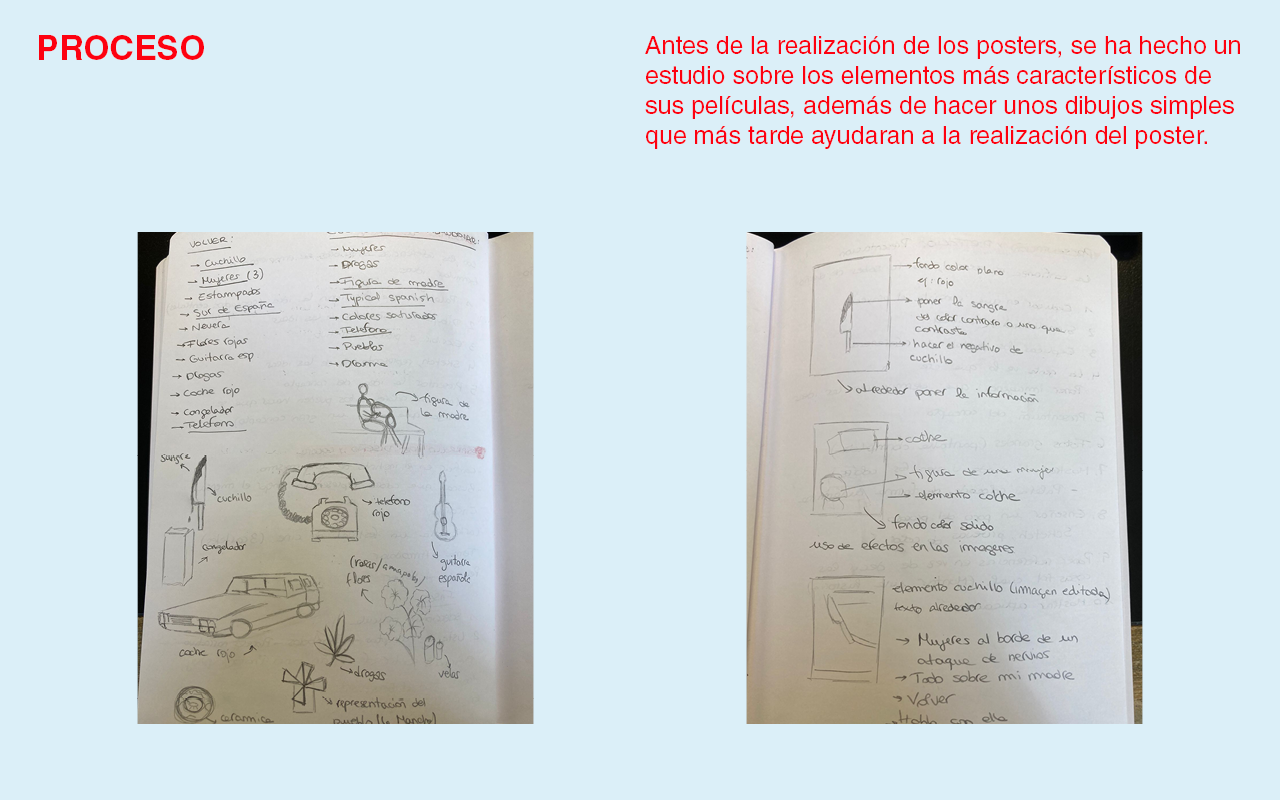 PROCESO
Antes de la realización de los posters, se ha hecho un
estudio sobre los elementos más característicos de
sus películas, además de hacer unos dibujos simples
que más tarde ayudaran a la realización del poster.
VOLVER:
→ Cuchillo
→ Mujeres (3)
→ Estampados
→ Sur de España
→ Nevera
→ Flores rojas
→ Guitarra esp
→ Drogas
→ Coche rojo
→ Congelador
→ Telefono
→ Mujeres
→ Drogas
→ Figura de madre
→ Typical spanish
→ Colores saturados
→ Telefono
→ Pueblos
→ Drama
figura de
la madre
sangre
cuchillo
telefono
rojo
congelador
guitarra
española
(rosas/amapola)/
flores
coche rojo
drogas
velas
ceramica
representación del
pueblo (la Mancha)
→ fondo color plano
ej: rojo
→ poner la sangre
del color contrario o uno que
contraste
→ hacer el negativo de
cuchillo
alrededor poner la información
→ coche
figura de una mujer
→ elemento coche
fondo color solido
uso de efectos en las imagenes
elemento cuchillo (imagen editada)
texto alrededor
→ Mujeres al borde de un
ataque de nervios
→ Todo sobre mi madre
→ Volver
→ Habla con ella